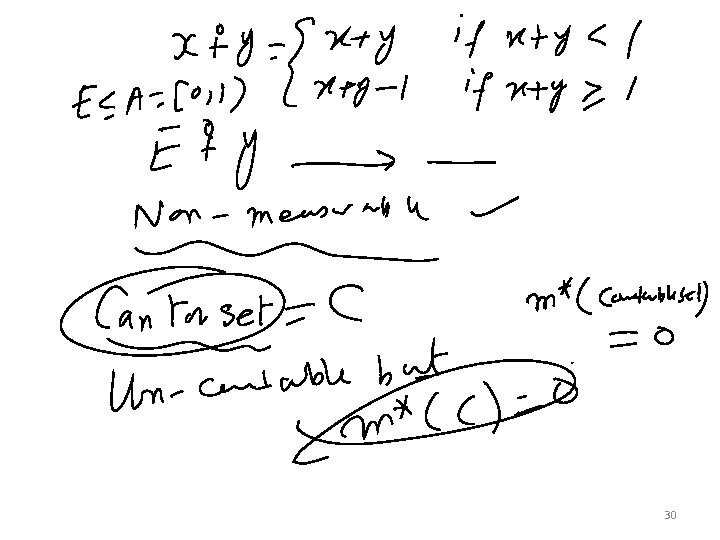 x ∔ y = { x+y if x+y < 1
{ x+y-1 if x+y ≥ 1
E ≤ A = [0,1)
E ∔ y ⟶ —
Non-measurable ✓
Cantor set = C
m*(Countable set) = 0
Un-countable but
m*(C) = 0
30